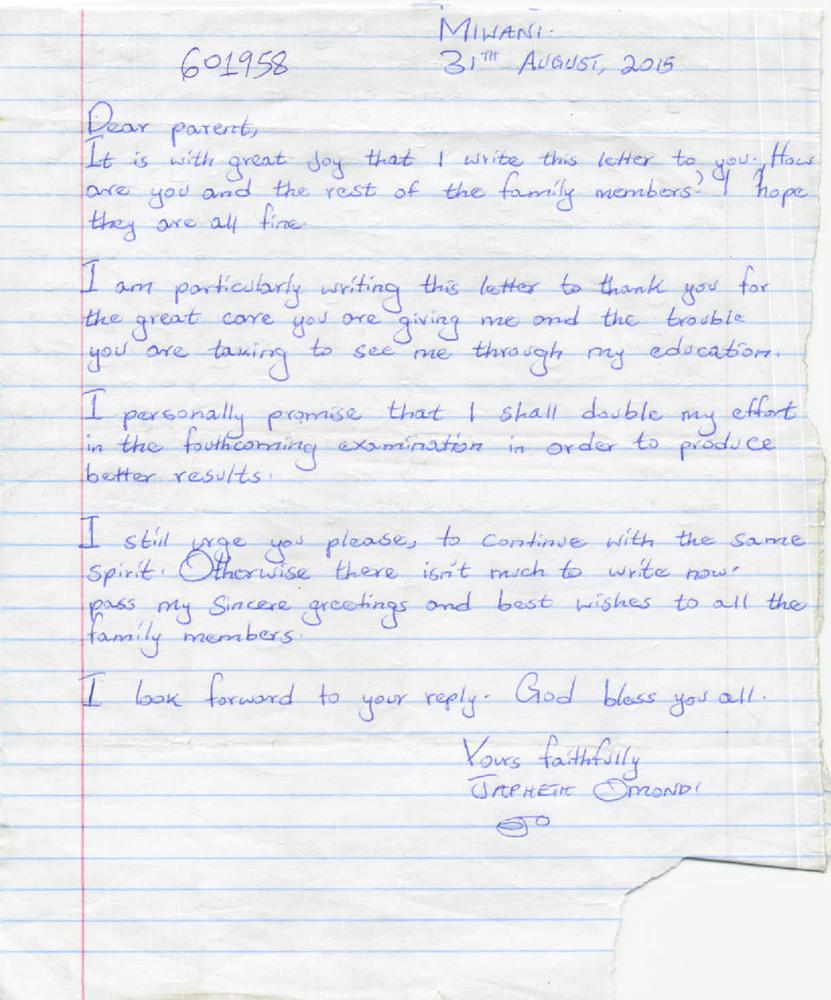 MIWANI.
601958
31TH AUGUST, 2015
Dear parent,
It is with great joy that I write this letter to you. How
are you and the rest of the family members? I hope
they are all fine.
I am particularly writing this letter to thank you for
the great care you are giving me and the trouble
you are taking to see me through my education.
I personally promise that I shall double my effort
in the fouthcoming examination in order to produce
better results.
I still urge you please, to continue with the same
spirit. Otherwise there isn't much to write now.
pass my sincere greetings and best wishes to all the
family members.
I look forward to your reply. God bless you all.
Yours faithfully
JAPHETH OMONDI